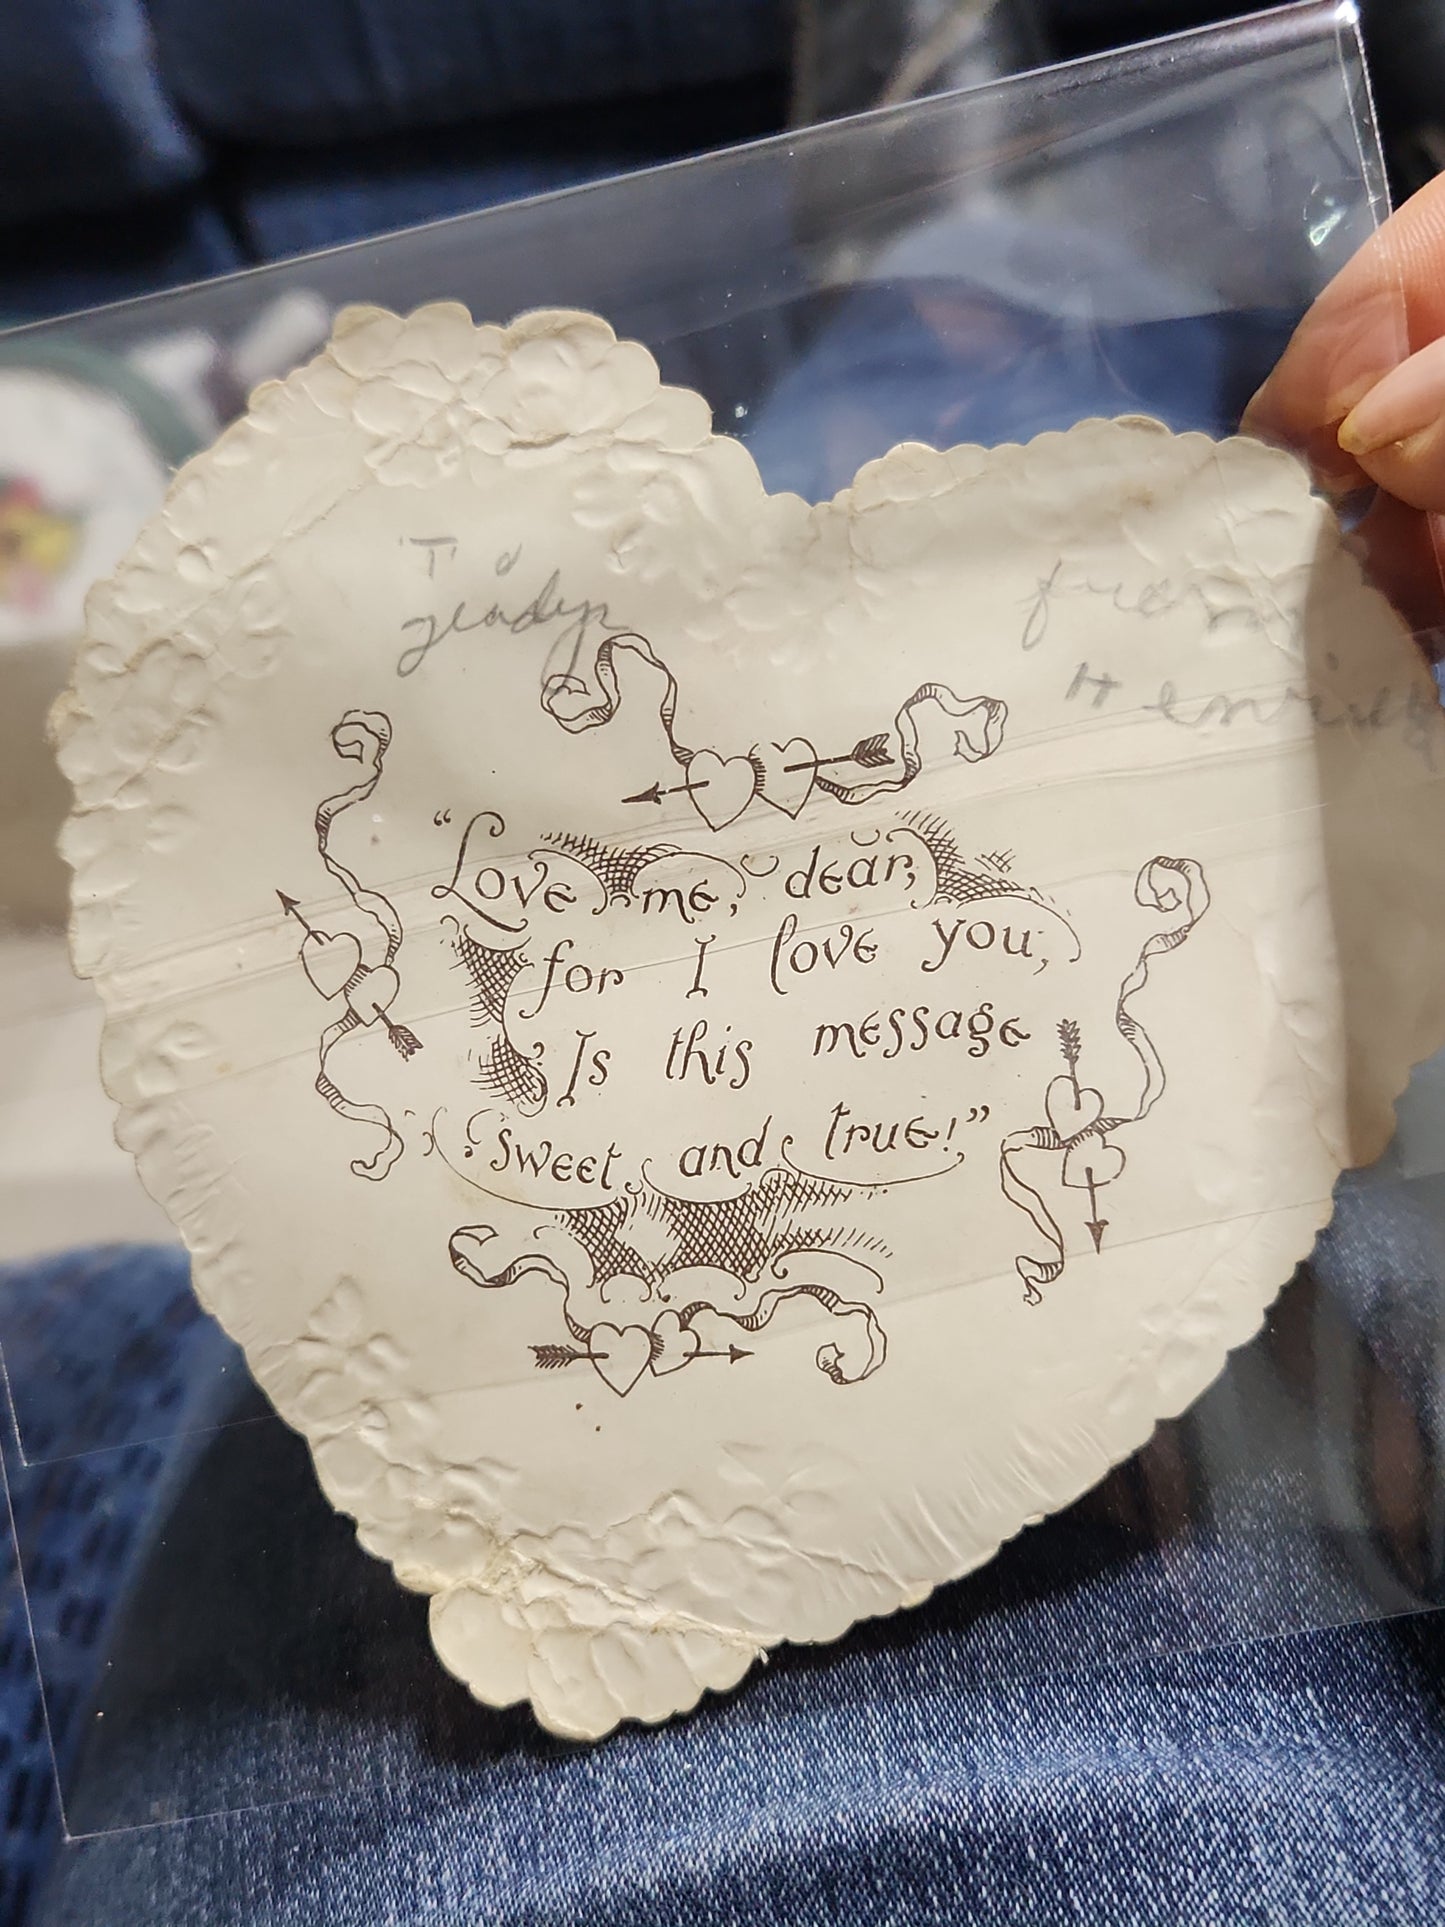 To
gladys
from
Henrietta
"Love me, dear,
for I love you,
Is this message
sweet and true!"